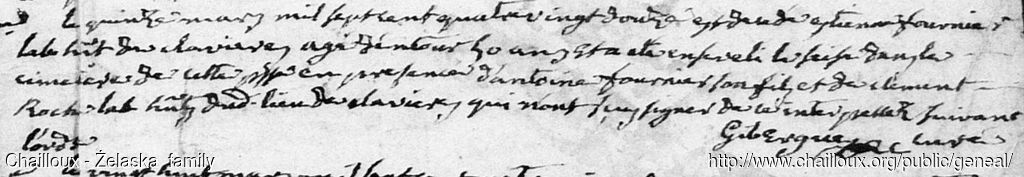 le quinze mars mil sept cent quatre vingt douze est decede estienne fournier
labt du clavieres age d'environ 80 ans et a ete enseveli le seise dans le
cimetiere de cette psse en presence d'antoine fournier son fils et de clement
Roche lab dud. lieu de clavieres qui n'ont scu signer de ce interpellez suivant
l'ordce
Gibergues cure
le vingt huit mars mil sept cent
Chailloux - Żelaska family
http://www.chailloux.org/public/geneal/